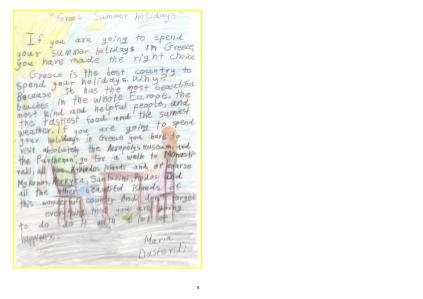 "Greek Summer holidays"
If you are going to spend
your summer holidays in Greece,
you have made the right choice
Greece is the best country to
spend your holidays. Why?
Because it has the most beautiful
beaches in the whole Europe, the
most kind and helpful people, and
the tastiest food and the sunniest
weather. If you are going to spend
your holidays in Greece you have to
visit absolutely the Acropolis museum, and
the Parthenon, go for a walk to Monasti-
raki, all the islands and of course
Mykonos, Kerkyra, Santorini, Rodos. And
all the other beautiful islands of
this wonderful country. And don't forget
everything that you are going
to do do it with a lot of
happiness.
Maria